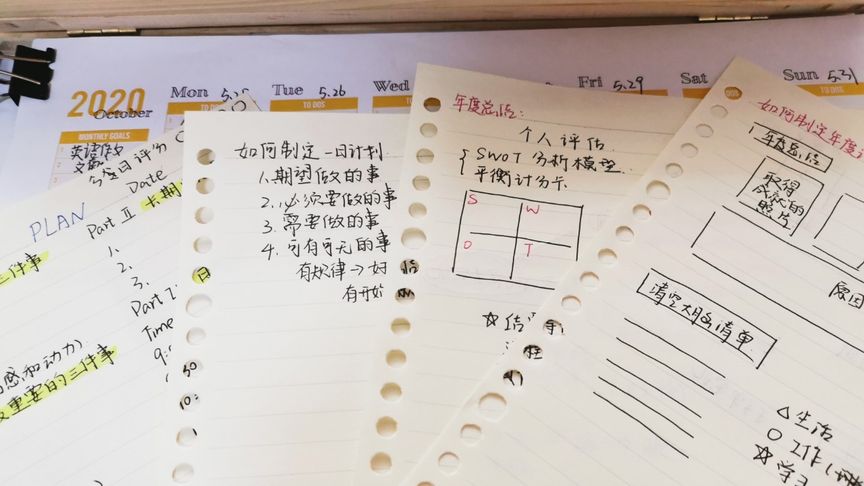 2020
October
Mon 5.25
Tue 5.26
Wed
Fri 5.29
Sat
Sun 5.31
TO DOS
TO DOS
MONTHLY GOALS
英语作文
今日评分
Date
PLAN
Part Ⅱ
三件事
1.
2.
3.
Part
Time
9:
感和动力)
重要的三件事
如何制定一日计划
1.期望做的事
2.必须要做的事
3.需要做的事
4.可有可无的事
有规律→好
有开始
日
10:
年度总结:
个人评估
SWOT分析模型
平衡计分卡
S W
O T
☆结
如何制定年度
年度总结
取得
成就的
照片
原因
清空大脑清单
△生活
○工作
☆学习